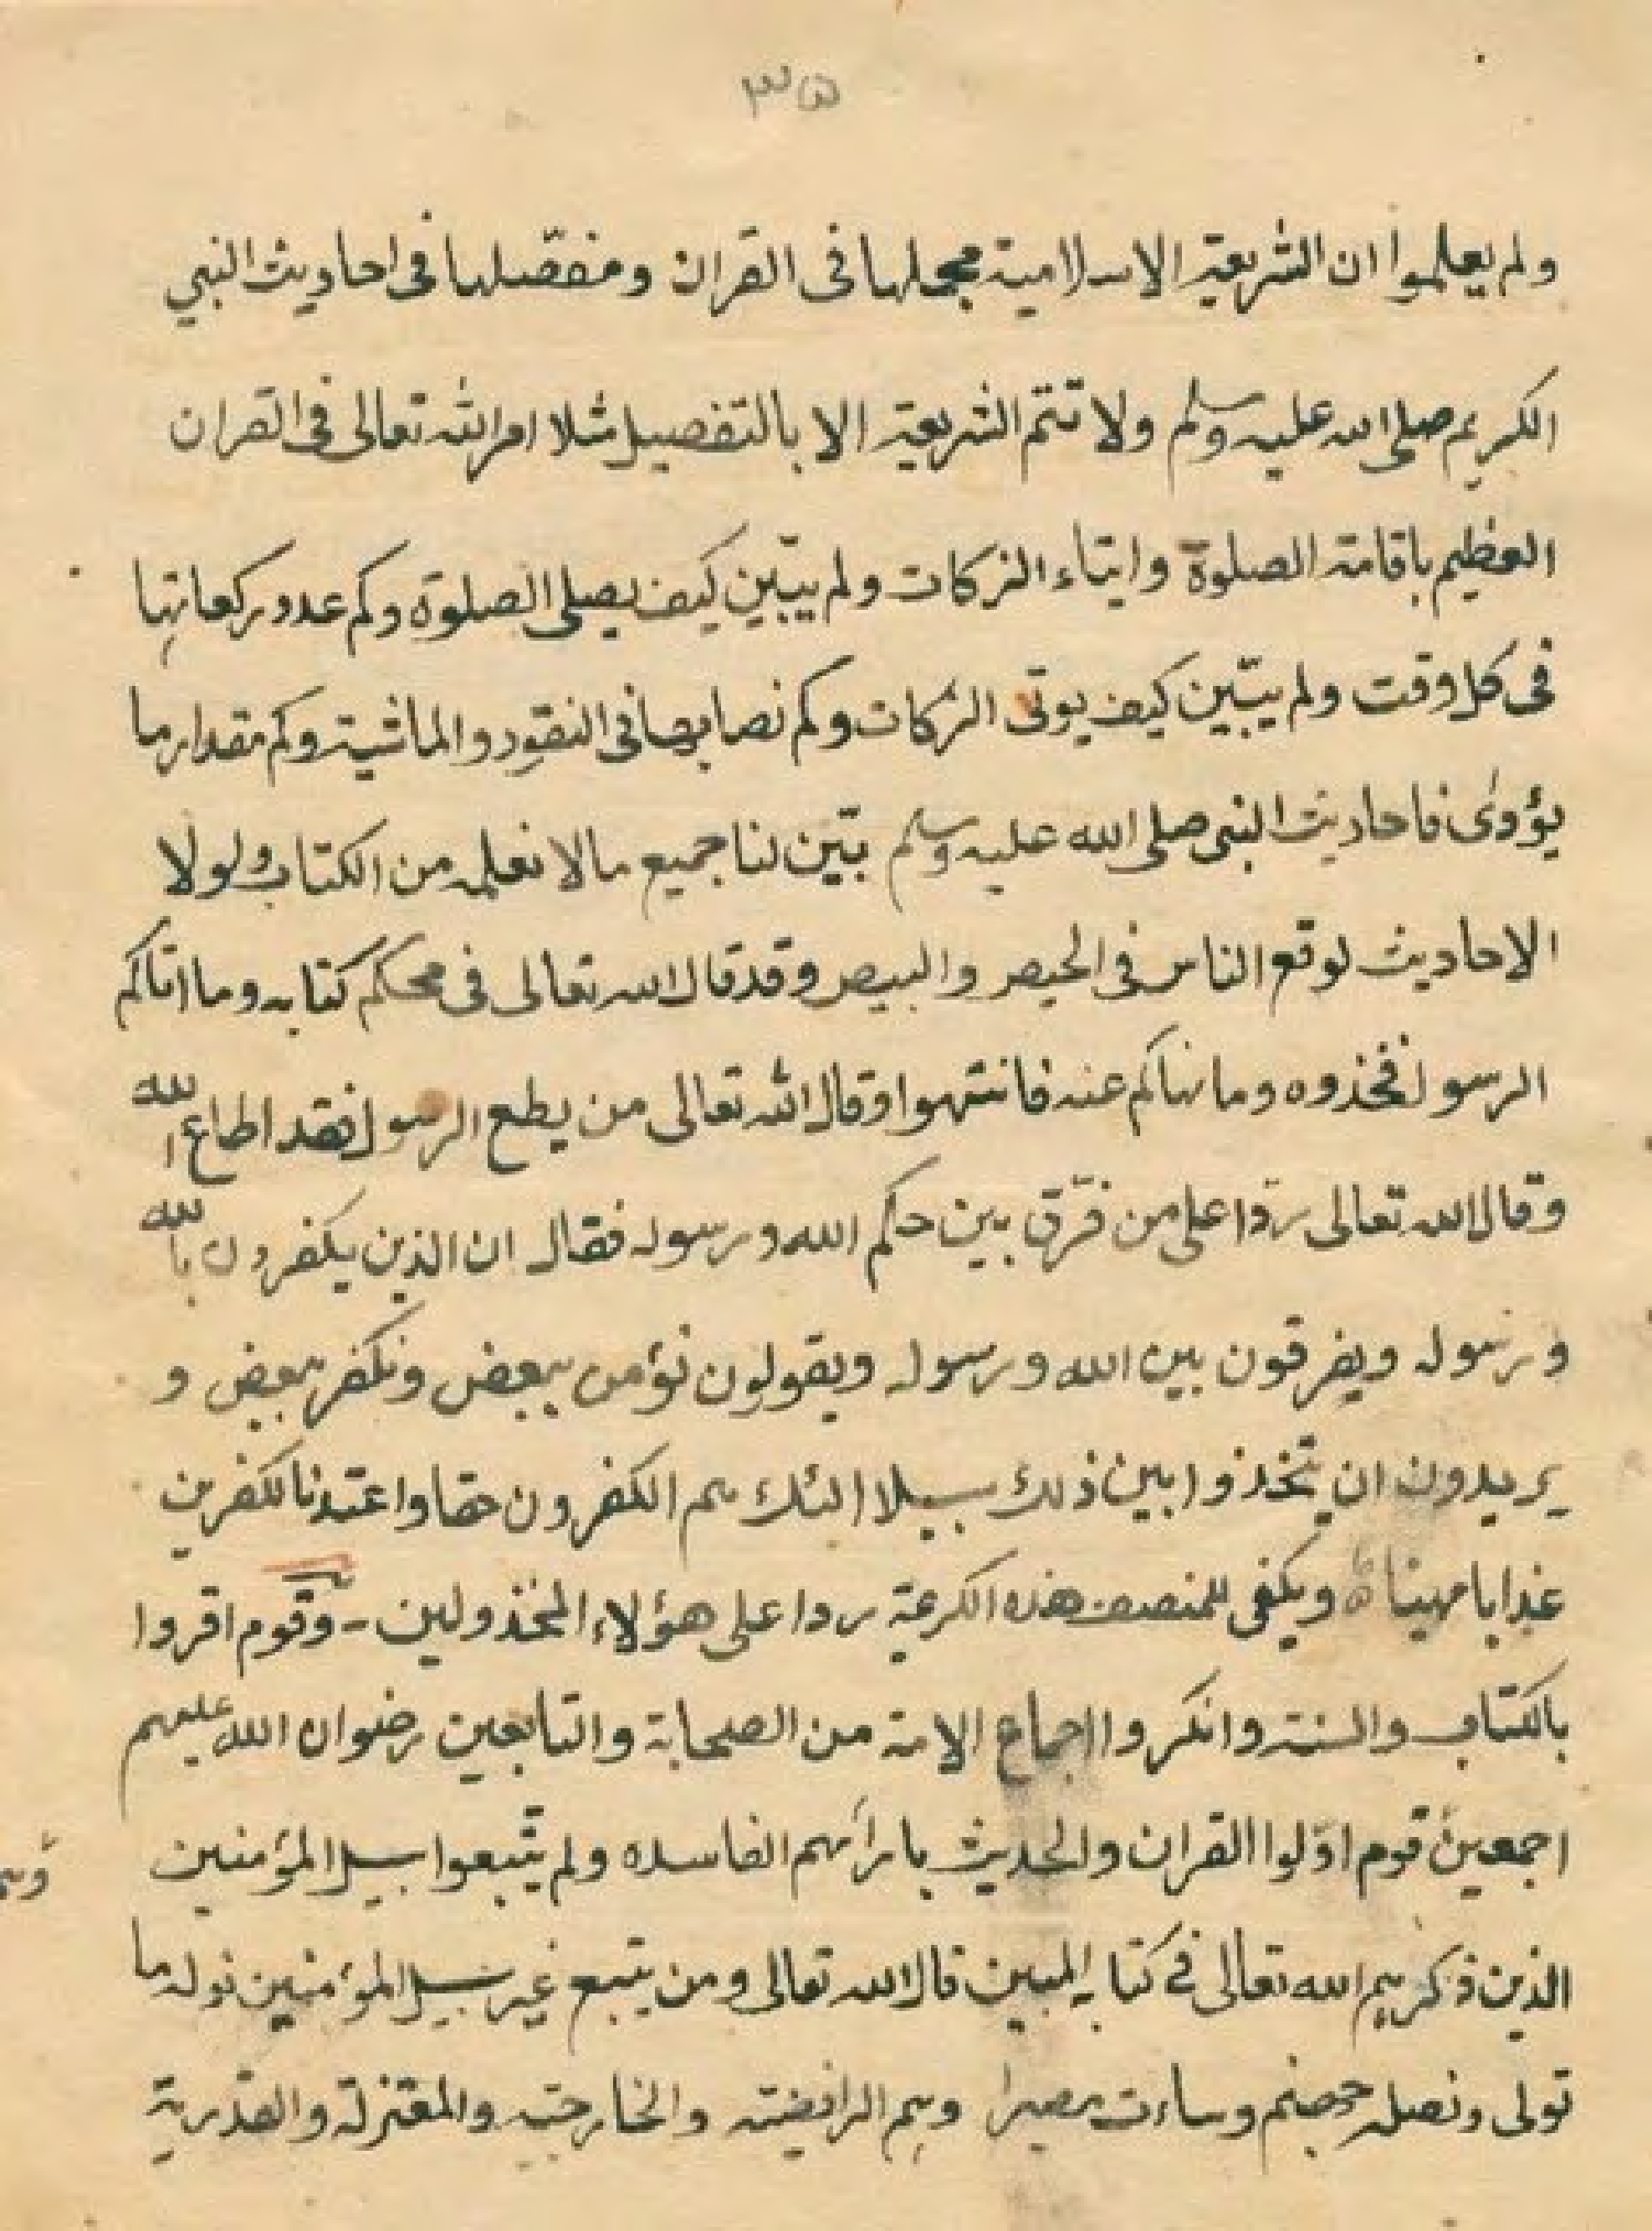 ٣٥
ولم يعلموا ان الشريعة الاسلامية مجملها فى القران ومفصّلها فى احاديث النبي
الكريم صلى الله عليه وسلم ولا تتم الشريعة الا بالتفصيل مثلا امر الله تعالى فى القران
العظيم باقامة الصلوة وايتاء الزكات ولم يبيّن كيف يصلى الصلوة وكم عدد ركعاتها
فى كل وقت ولم يبيّن كيف يوتى الزكات وكم نصابها فى النقود والماشية وكم مقدار ما
يؤدى فاحاديث النبى صلى الله عليه وسلم بيّن لنا جميع مالا نعلمه من الكتاب ولولا
الاحاديث لوقع الناس فى الحيص والبيص وقد قال الله تعالى فى محكم كتابه وما اتاكم
الرسول فخذوه وما نهاكم عنه فانتهوا وقال الله تعالى من يطع الرسول فقد اطاع الله
وقال الله تعالى ردا على من فرّق بين حكم الله ورسوله فقال ان الذين يكفرون بالله
ورسوله ويفرقون بين الله ورسوله ويقولون نؤمن ببعض ونكفر ببعض و
يريدون ان يتخذوا بين ذلك سبيلا اولئك هم الكفرون حقا واعتدنا للكفرين
عذابا مهينا ويكفى للمنصف هذه الكريمة ردا على هؤلاء المخذولين - وقوم اقروا
بالكتاب والسنة وانكروا اجماع الامة من الصحابة والتابعين رضوان الله عليهم
اجمعين قوم اوّلوا القران والحديث بارائهم الفاسده ولم يتبعوا سبيل المؤمنين
الذين ذكرهم الله تعالى فى كتابه المبين قال الله تعالى ومن يتبع غير سبيل المؤمنين نوله ما
تولى ونصله جهنم وساءت مصيرا وهم الرافضة والخارجية والمعتزلة والقدرية